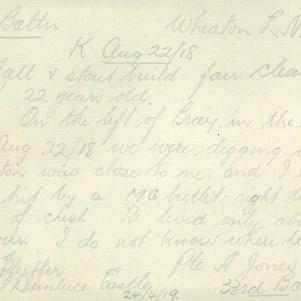 Battn Wheaton L. N
K Aug 22/18
Tall & stout build fair clea
22 years old.
On the left of Bray in the
Aug 22/18 we were digging i
ton was close to me, and I
hit by a MG bullet right t
of chest. He lived only ab
I do not know where he
Pfeiffer Pte A Jones
Dunluce Castle 33rd Ba
24/4/19.